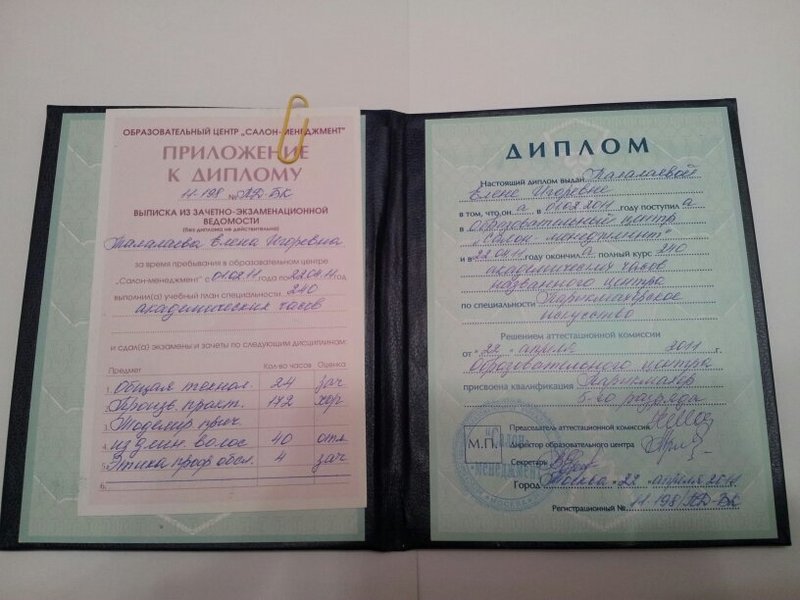 ОБРАЗОВАТЕЛЬНЫЙ ЦЕНТР „САЛОН-МЕНЕДЖМЕНТ"
ПРИЛОЖЕНИЕ
К ДИПЛОМУ
11-198 № ПД-БК
ВЫПИСКА ИЗ ЗАЧЕТНО-ЭКЗАМЕНАЦИОННОЙ
ВЕДОМОСТИ
(без диплома не действительна)
Талалаева Елена Игоревна
за время пребывания в образовательном центре
"Салон-менеджмент" с 01.02.11 года по 22.04.11 год
выполнил(а) учебный план специальности 240
академических часов
и сдал(а) экзамены и зачеты по следующим дисциплинам:
Предмет Кол-во часов Оценка
1. Общая технол. 24 зач
2. Произв. практ. 172 хор
3. Моделир прич.
4. из длин. волос 40 отл
5. Этика проф обсл. 4 зач
6.
ДИПЛОМ
Настоящий диплом выдан Талалаевой
Елене Игоревне
в том, что он а в 01.02.2011 году поступил а
в образовательный центр
"Салон менеджмент"
и в 22.04.11 году окончил а полный курс 240
академических часов
названного центра
по специальности Парикмахерское
искусство
Решением аттестационной комиссии
от "22" апреля 2011 г.
Образовательного центра
присвоена квалификация Парикмахер
5-го разряда
Председатель аттестационной комиссии
М.П. Директор образовательного центра
Секретарь
Город Москва "22" апреля 2011
Регистрационный № 11-198/ПД-БК
САЛОН
МЕНЕДЖМЕНТ
МОСКВА